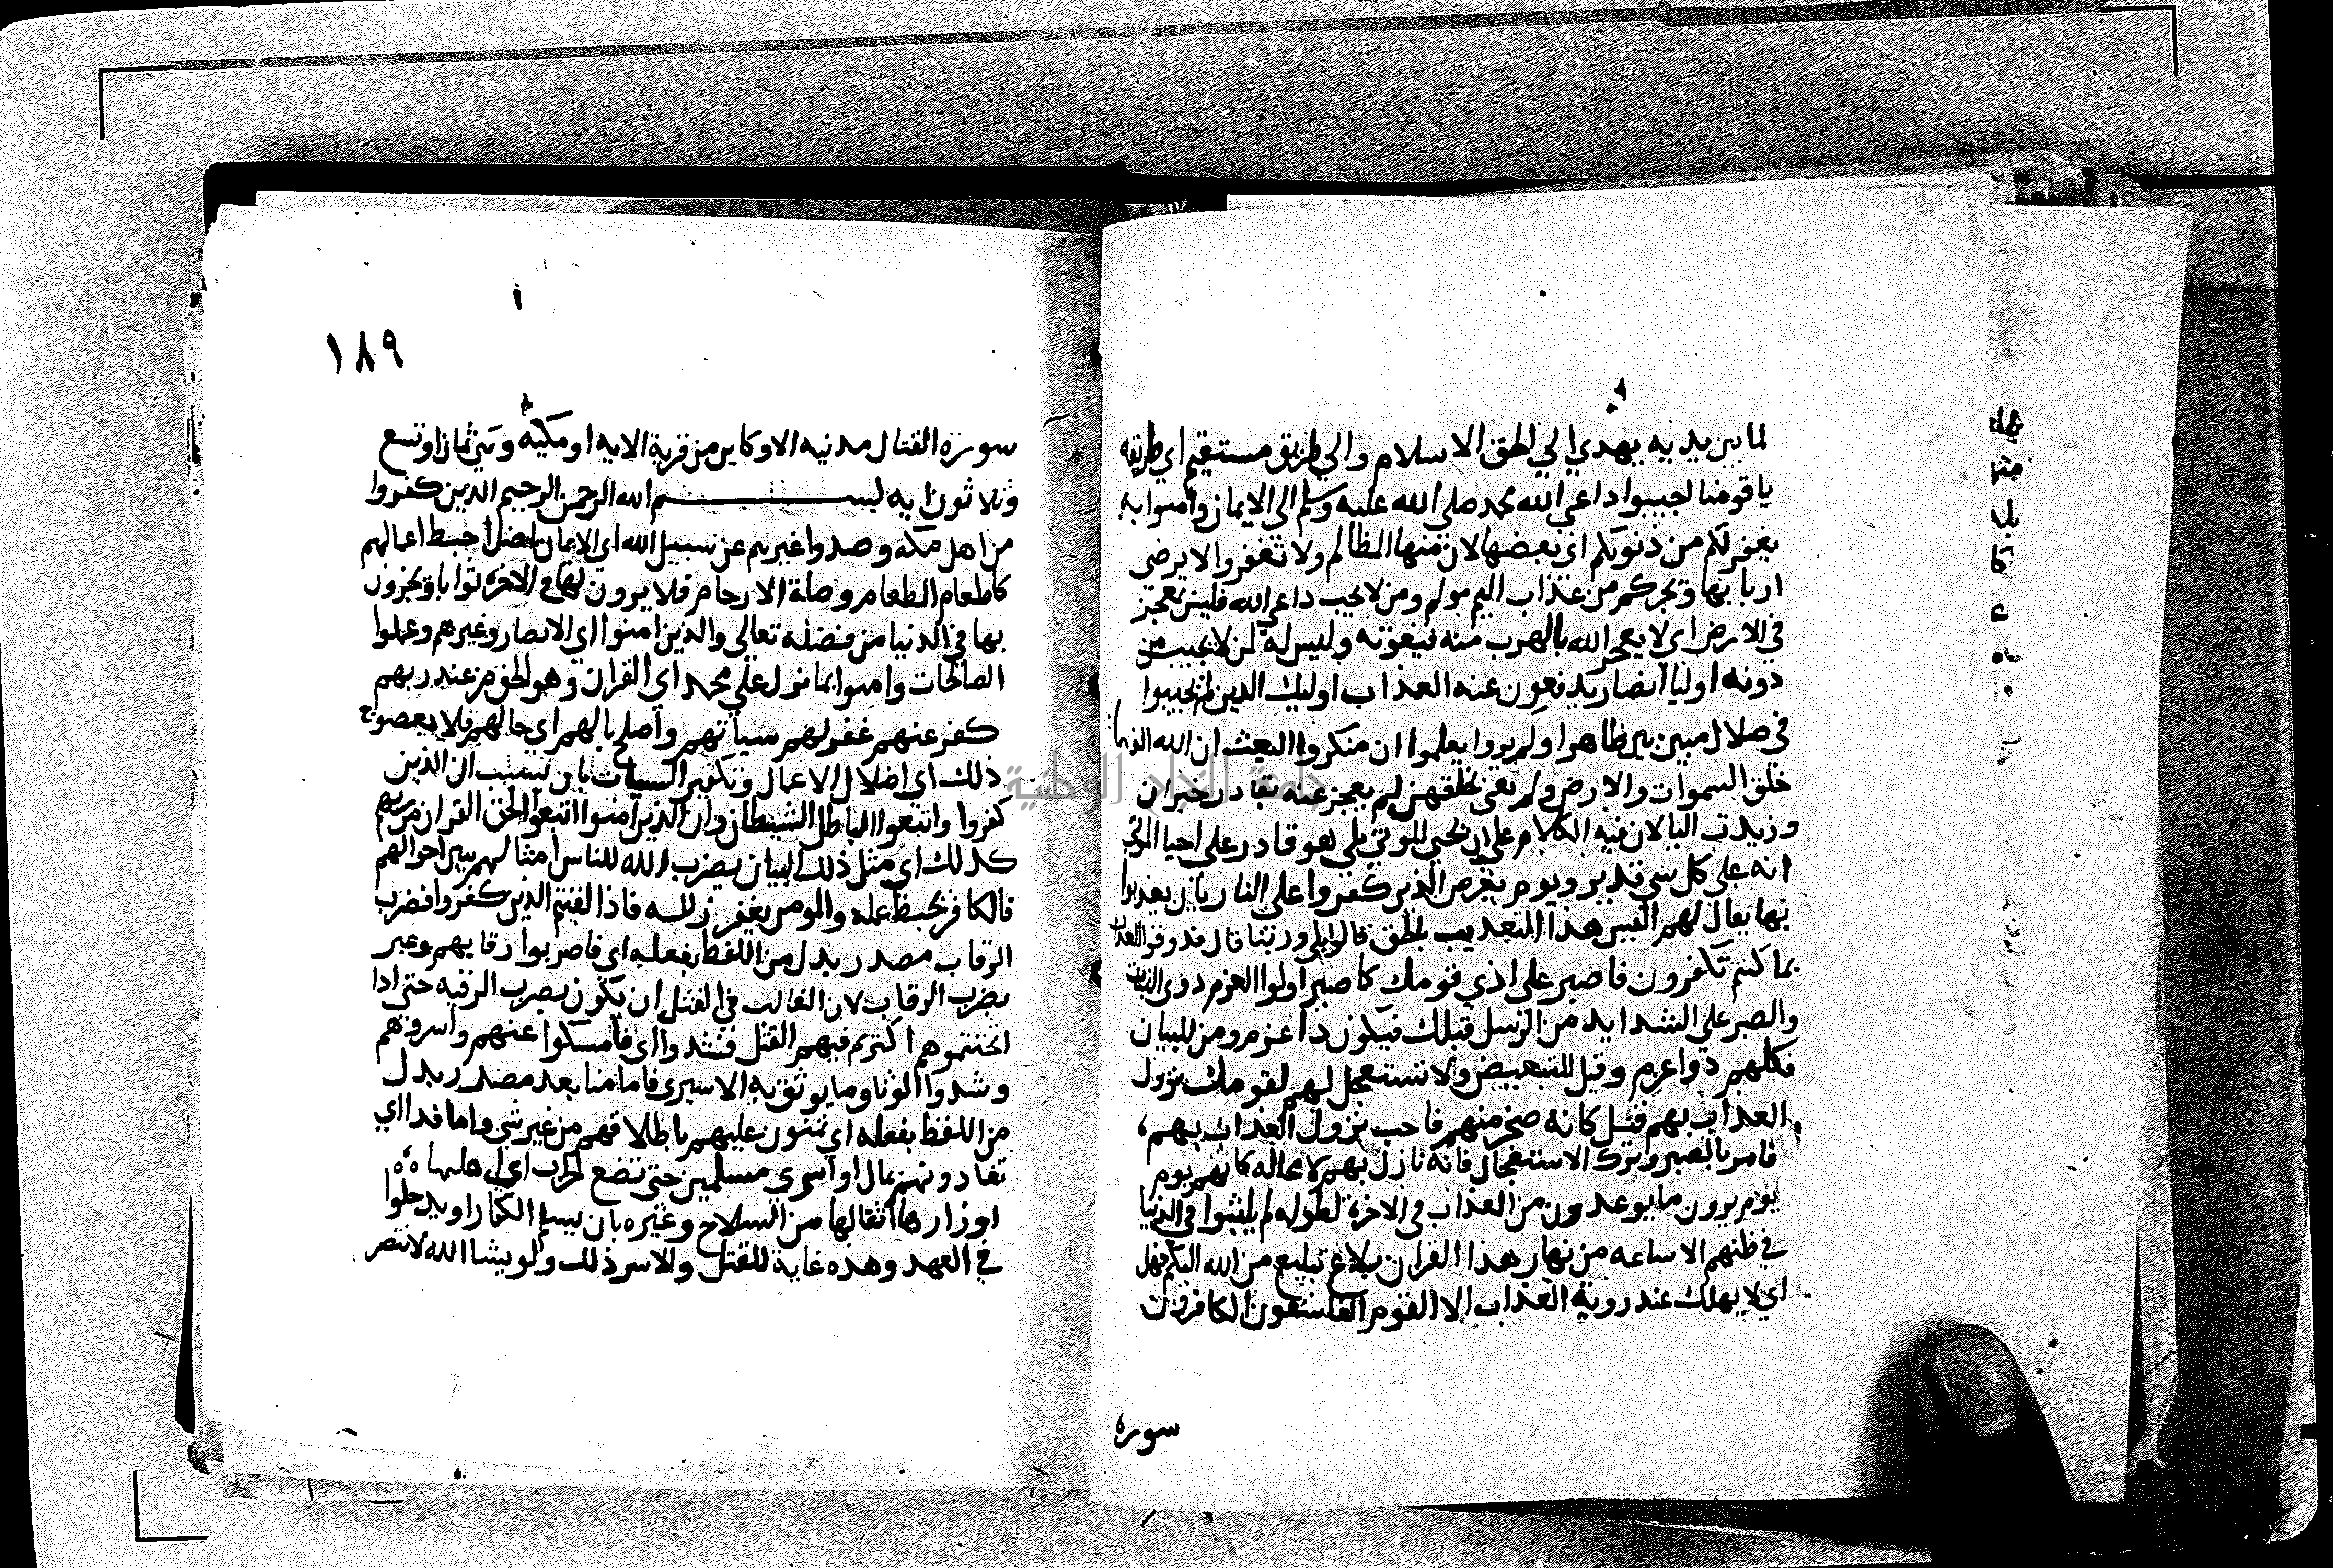 لما بين يديه يهدي الي الحق الاسلام والي طريق مستقيم اي طريقه
يا قومنا اجيبوا داعي الله محمد صلي الله عليه وسلم الى الايمان وامنوا به
يغفر لكم من ذنوبكم اي بعضها لان منها المظالم ولا تغفر الا برضى
اربابها ويجركم من عذاب اليم مولم ومن لا يجب داعي الله فليس بمعجز
في الارض اي لا يعجز الله بالهرب منه فيفوته وليس له لمن لا يجيب من
دونه اوليا انصار يدفعون عنه العذاب اوليك الذين لم يجيبوا
في ضلال مبين بين ظاهر اولم يروا يعلموا ان منكروا البعث ان الله الذي
خلق السموات والارض ولم يعي بخلقهن لم يعجز عنه بقادر خبر ان
وزيدت البا لان فيه الكلام علي ان يحيي الموتي بلي هو قادر علي احيا الموتي
انه علي كل شي قدير ويوم يعرض الذين كفروا علي النار بان يعذبوا
بها يقال لهم اليس هذا التعذيب بالحق قالوا بلي وربنا قال فذوقوا العذاب
بما كنتم تكفرون فاصبر على اذي قومك كما صبر اولوا العزم ذوى الثبات
والصبر علي الشدايد من الرسل قبلك فتكون ذا عزم ومن للبيان
فكلهم ذوا عزم وقيل للتبعيض ولا تستعجل لهم لقومك نزول
العذاب بهم قيل كانه ضجر منهم فاحب نزول العذاب بهم
فامر بالصبر وترك الاستعجال فانه نازل بهم لا محاله كانهم يوم
يوم يرون ما يوعدون من العذاب في الاخرة لطوله لم يلبثوا في الدنيا
في ظنهم الا ساعه من نهار هذا القران بلاغ تبليغ من الله اليكم فهل
اي لا يهلك عند روية العذاب الا القوم الفاسقون الكافرون
سوره
١٨٩
سورة القتال مدنيه الا وكاين من قرية الايه او مكيه وهي ثمان او تسع
وثلاثون ايه بسم الله الرحمن الرحيم الذين كفروا
من اهل مكه وصدوا غيرهم عن سبيل الله اي الايمان اضل احبط اعمالهم
كاطعام الطعام وصلة الارحام فلا يرون لها في الاخره ثوابا ويجزون
بها في الدنيا من فضله تعالي والذين امنوا اي الانصار وغيرهم وعملوا
الصالحات وامنوا بما نزل علي محمد اي القران وهو الحق من عند ربهم
كفر عنهم غفر لهم سياتهم واصلح بالهم اي حالهم فلا يعصونه
ذلك اي اضلال الاعمال وتكفير السيات بان بسبب ان الذين
كفروا واتبعوا الباطل الشيطان وان الذين امنوا اتبعوا الحق القران من ربهم
كذلك اي مثل ذلك البيان يضرب الله للناس امثالهم يبين احوالهم
فالكافر يحبط عمله والمومن يغفر زلله فاذا لقيتم الذين كفروا فضرب
الرقاب مصدر بدل من اللفظ بفعله اي فاضربوا رقابهم وعبر
بضرب الرقاب لان الغالب في القتل ان يكون بضرب الرقبه حتى اذا
اثخنتموهم اكثرتم فيهم القتل فشدوا اي فامسكوا عنهم واسروهم
وشدوا الوثاق ما يوثق به الاسرى فاما منا بعد مصدر بدل
من اللفظ بفعله اي تمنون عليهم باطلاقهم من غير شي واما فدا اي
تفادونهم بمال او اسري مسلمين حتى تضع الحرب اي اهلها
اوزارها اثقالها من السلاح وغيره بان يسلم الكفار او يدخلوا
في العهد وهذه غاية للقتل والاسر ذلك ولو يشا الله لانتصر